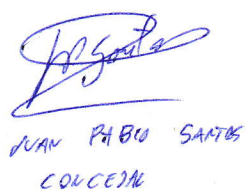 JUAN PABLO SANTOS
CONCEJAL